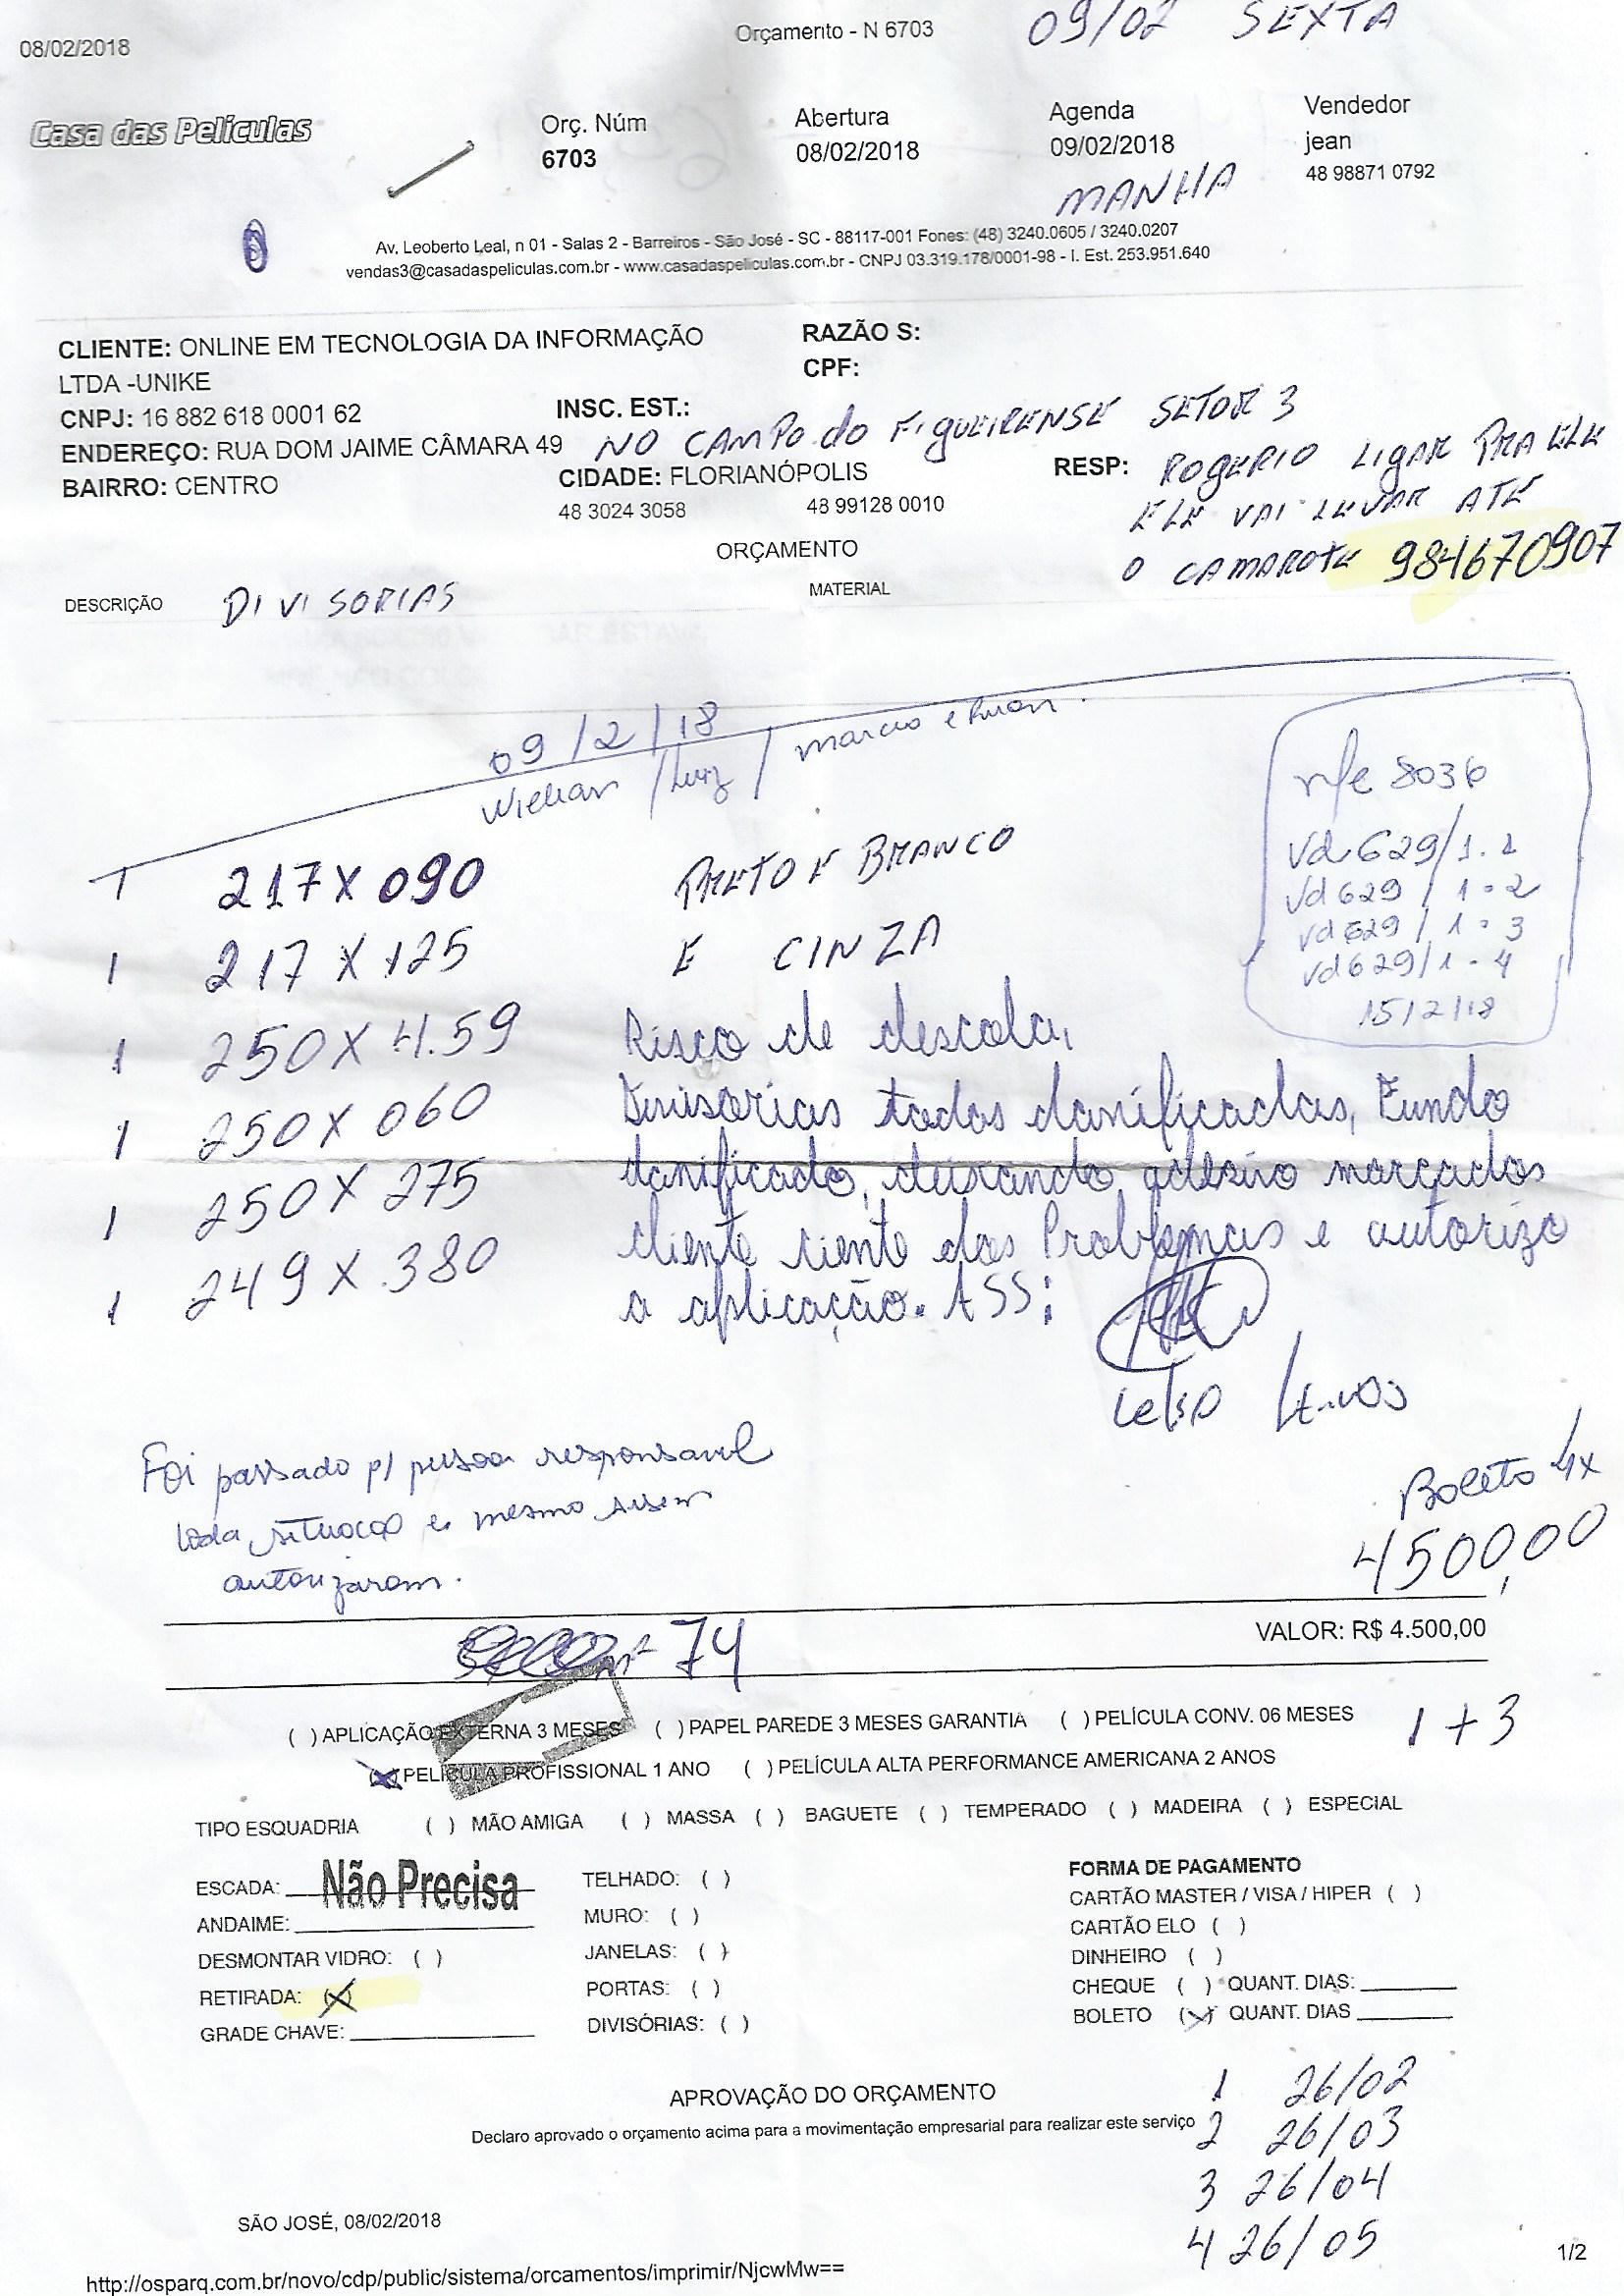 08/02/2018
Orçamento - N 6703
09/02 SEXTA
Casa das Películas
Orç. Núm
6703
Abertura
08/02/2018
Agenda
09/02/2018
MANHA
Vendedor
jean
48 98871 0792
Av. Leoberto Leal, n 01 - Salas 2 - Barreiros - São José - SC - 88117-001 Fones: (48) 3240.0605 / 3240.0207
vendas3@casadaspeliculas.com.br - www.casadaspeliculas.com.br - CNPJ 03.319.178/0001-98 - I. Est. 253.951.640
CLIENTE: ONLINE EM TECNOLOGIA DA INFORMAÇÃO
LTDA -UNIKE
RAZÃO S:
CPF:
CNPJ: 16 882 618 0001 62
INSC. EST.:
ENDEREÇO: RUA DOM JAIME CÂMARA 49
NO CAMPO do FIGUEIRENSE SETOR 3
BAIRRO: CENTRO
CIDADE: FLORIANÓPOLIS
48 3024 3058
48 99128 0010
RESP: ROGERIO LIGAR PRA ELE
ELE VAI LEVAR ATE
O CAMAROTE 984670907
ORÇAMENTO
DESCRIÇÃO DIVISORIAS
MATERIAL
09/2/18
Willian / Luiz / marcio e
nfe 8036
Vd 629/1.1
Vd 629 / 1.2
Vd 629 / 1.3
Vd 629/1.4
15/2/18
1 217 X 090 PRETO E BRANCO
1 217 X 125 E CINZA
1 250 X 4.59 Risco de descola,
1 250 X 060 Divisorias todas danificadas, Fundo
1 250 X 275 danificado, deixando adesivo marcados
1 249 X 380 cliente ciente dos Problemas e autorizo
a aplicação. ASS:
Celso
Foi passado p/ pessoa responsavel
toda situação e mesmo assim
autorizaram.
Boleto 4x
4500,00
VALOR: R$ 4.500,00
74
( ) APLICAÇÃO EXTERNA 3 MESES ( ) PAPEL PAREDE 3 MESES GARANTIA ( ) PELÍCULA CONV. 06 MESES
1 + 3
(X) PELÍCULA PROFISSIONAL 1 ANO ( ) PELÍCULA ALTA PERFORMANCE AMERICANA 2 ANOS
TIPO ESQUADRIA ( ) MÃO AMIGA ( ) MASSA ( ) BAGUETE ( ) TEMPERADO ( ) MADEIRA ( ) ESPECIAL
ESCADA: Não Precisa
ANDAIME:
DESMONTAR VIDRO: ( )
RETIRADA: (X)
GRADE CHAVE:
TELHADO: ( )
MURO: ( )
JANELAS: ( )
PORTAS: ( )
DIVISÓRIAS: ( )
FORMA DE PAGAMENTO
CARTÃO MASTER / VISA / HIPER ( )
CARTÃO ELO ( )
DINHEIRO ( )
CHEQUE ( ) QUANT. DIAS:
BOLETO (X) QUANT. DIAS
APROVAÇÃO DO ORÇAMENTO
Declaro aprovado o orçamento acima para a movimentação empresarial para realizar este serviço
1 26/02
2 26/03
3 26/04
4 26/05
SÃO JOSÉ, 08/02/2018
1/2
http://osparq.com.br/novo/cdp/public/sistema/orcamentos/imprimir/NjcwMw==